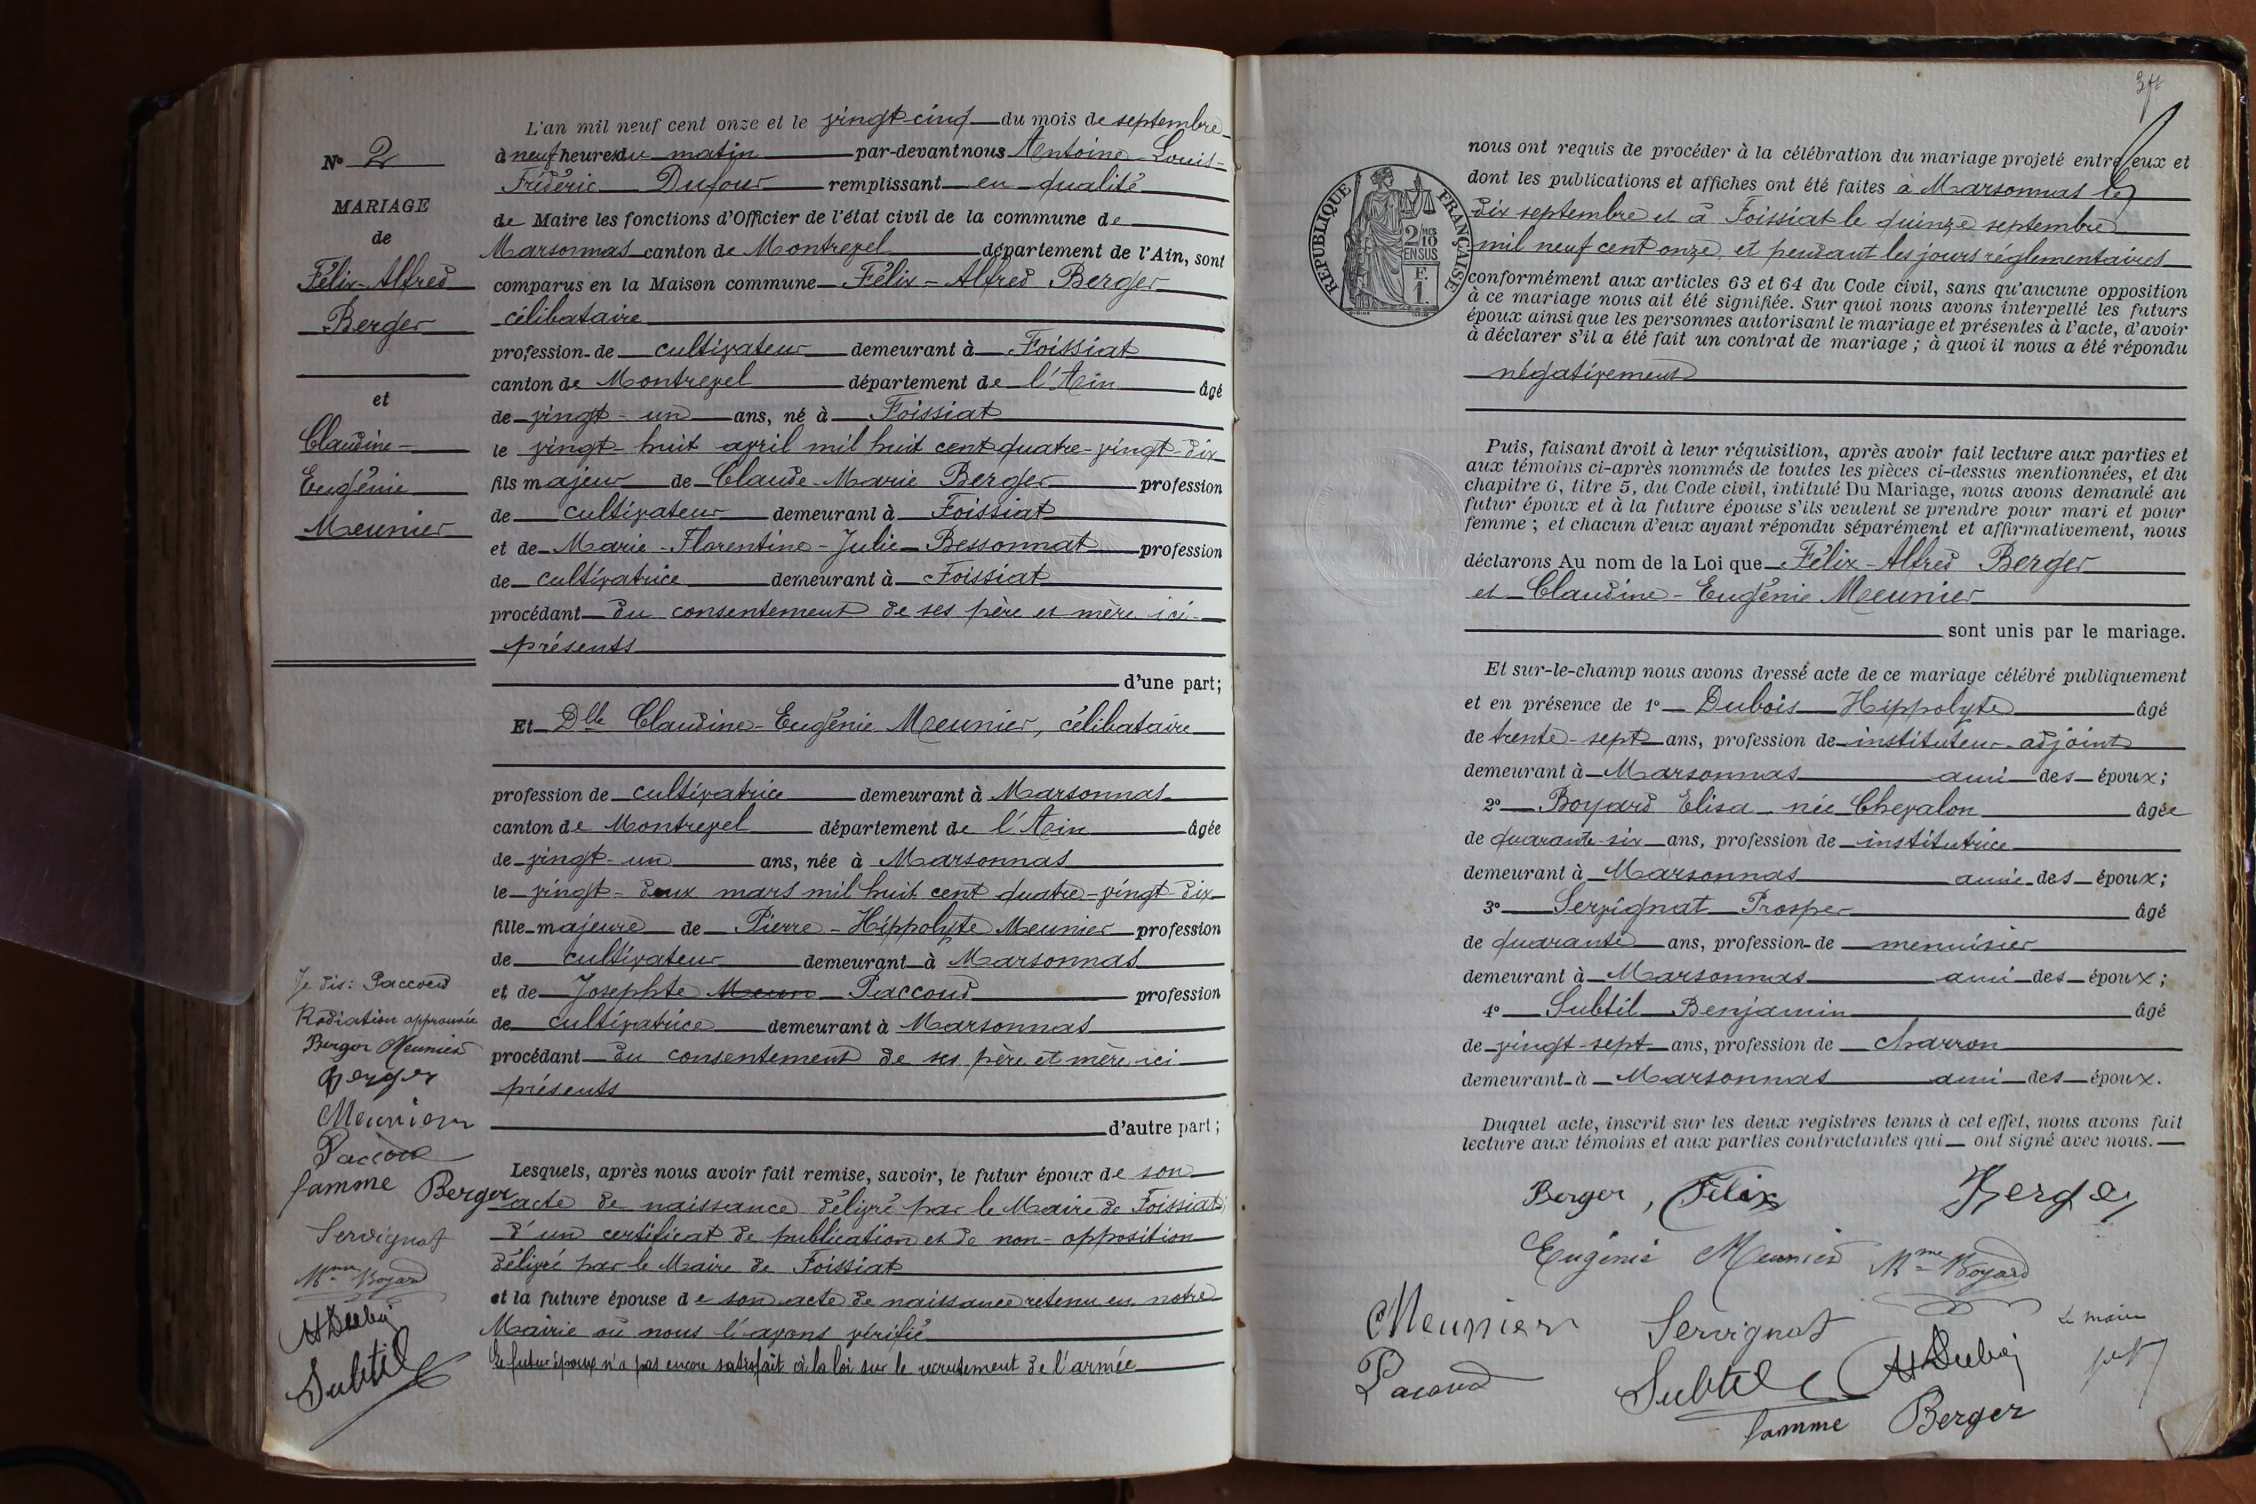 N° 2
MARIAGE
de
Félix-Alfred
Berger
et
Claudine-
Eugénie
Meunier
L'an mil neuf cent onze et le vingt-cinq du mois de septembre
à neuf heures du matin par-devant nous Antoine-Louis-
Frédéric Dufour remplissant en qualité
de Maire les fonctions d'Officier de l'état civil de la commune de
Marsonnas canton de Montrevel département de l'Ain, sont
comparus en la Maison commune Félix-Alfred Berger
célibataire
profession de cultivateur demeurant à Foissiat
canton de Montrevel département de l'Ain âgé
de vingt-un ans, né à Foissiat
le vingt-huit avril mil huit cent quatre-vingt-dix
fils majeur de Claude-Marie Berger profession
de cultivateur demeurant à Foissiat
et de Marie-Florentine-Julie Bessonnat profession
de cultivatrice demeurant à Foissiat
procédant du consentement de ses père et mère ici
présents
d'une part;
Et Dlle Claudine-Eugénie Meunier, célibataire
profession de cultivatrice demeurant à Marsonnas
canton de Montrevel département de l'Ain âgée
de vingt-un ans, née à Marsonnas
le vingt-deux mars mil huit cent quatre-vingt-dix
fille majeure de Pierre-Hippolyte Meunier profession
de cultivateur demeurant à Marsonnas
et de Josephte Meun Paccoud profession
de cultivatrice demeurant à Marsonnas
procédant du consentement de ses père et mère ici
présents
d'autre part;
Lesquels, après nous avoir fait remise, savoir, le futur époux de son
acte de naissance délivré par le Maire de Foissiat;
d'un certificat de publication et de non-opposition
délivré par le Maire de Foissiat
et la future épouse de son acte de naissance retenu en notre
Mairie où nous l'avons vérifié
Le futur époux n'a pas encore satisfait à la loi sur le recrutement de l'armée
Je dis: Paccoud
Radiation approuvée
Berger Meunier
Berger
Meunier
Pacoud
famme Berger
Servignat
Mme Boyard
H Dubois
Subtil
RÉPUBLIQUE FRANÇAISE
2/10 EN SUS
nous ont requis de procéder à la célébration du mariage projeté entre eux et
dont les publications et affiches ont été faites à Marsonnas le
dix septembre et à Foissiat le quinze septembre
mil neuf cent onze et pendant les jours réglementaires
conformément aux articles 63 et 64 du Code civil, sans qu'aucune opposition
à ce mariage nous ait été signifiée. Sur quoi nous avons interpellé les futurs
époux ainsi que les personnes autorisant le mariage et présentes à l'acte, d'avoir
à déclarer s'il a été fait un contrat de mariage; à quoi il nous a été répondu
négativement
Puis, faisant droit à leur réquisition, après avoir fait lecture aux parties et
aux témoins ci-après nommés de toutes les pièces ci-dessus mentionnées, et du
chapitre 6, titre 5, du Code civil, intitulé Du Mariage, nous avons demandé au
futur époux et à la future épouse s'ils veulent se prendre pour mari et pour
femme; et chacun d'eux ayant répondu séparément et affirmativement, nous
déclarons Au nom de la Loi que Félix-Alfred Berger
et Claudine-Eugénie Meunier
sont unis par le mariage.
Et sur-le-champ nous avons dressé acte de ce mariage célébré publiquement
et en présence de 1° Dubois Hippolyte âgé
de trente-sept ans, profession de instituteur-adjoint
demeurant à Marsonnas ami des époux;
2° Boyard Elisa née Chevalon âgée
de quarante-six ans, profession de institutrice
demeurant à Marsonnas amie des époux;
3° Servignat Prosper âgé
de quarante ans, profession de menuisier
demeurant à Marsonnas ami des époux;
4° Subtil Benjamin âgé
de vingt-sept ans, profession de charron
demeurant à Marsonnas ami des époux.
Duquel acte, inscrit sur les deux registres tenus à cet effet, nous avons fait
lecture aux témoins et aux parties contractantes qui ont signé avec nous.
Berger, Félix Berger
Eugénie Meunier Mme Boyard
Meunier Servignat Le maire
Pacoud Subtil H Dubois
famme Berger